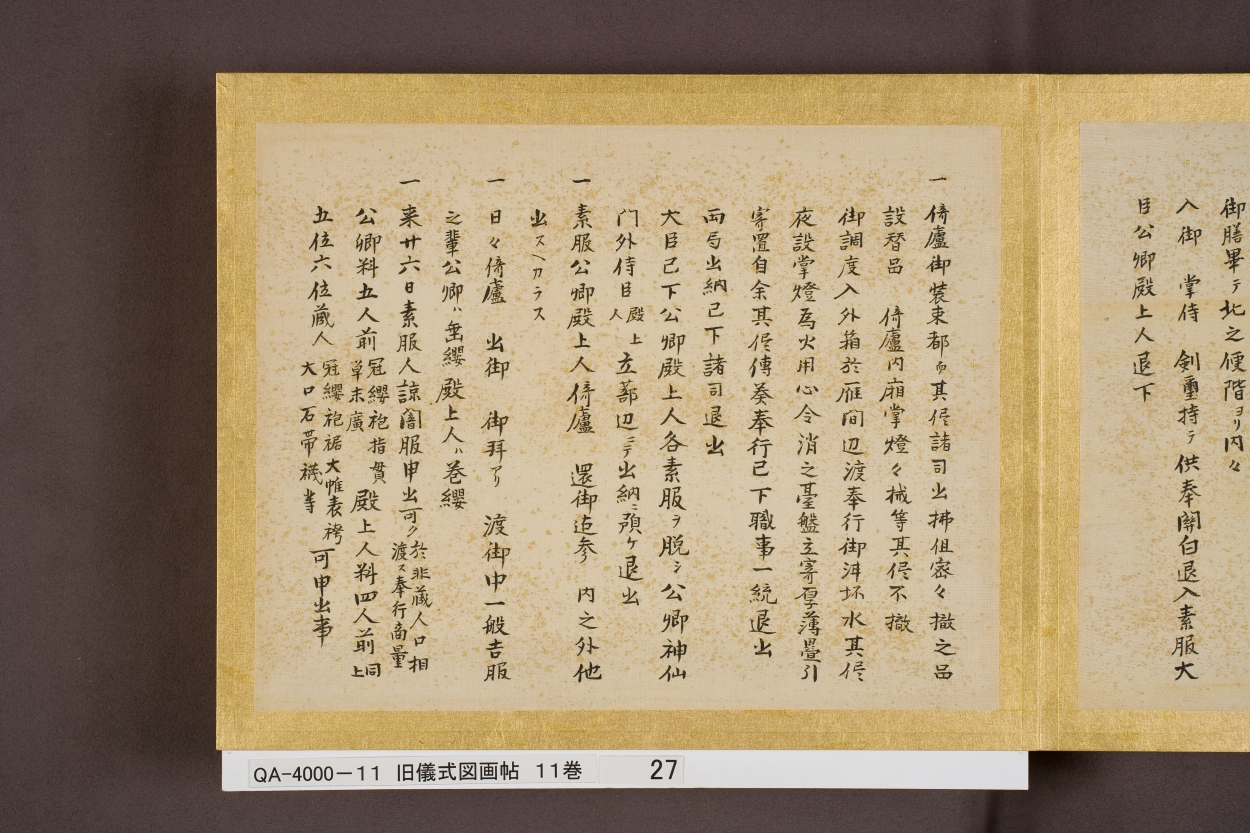 御膳畢テ北之便階ヨリ内々
入御　掌侍　剣璽持テ供奉関白退入素服大
臣公卿殿上人退下
一倚廬御装束都而其侭諸司出拂但密々撤之品
設替品　倚廬内廂掌燈々械等其侭不撤
御調度入外箱於雁間辺渡奉行御洋坏水其侭
夜設掌燈為火用心令消之臺盤立寄厚薄畳引
寄置自余其侭傳奏奉行已下職事一統退出
両局出納已下諸司退出
大臣已下公卿殿上人各素服ヲ脱シ公卿神仙
門外侍臣殿上人立蔀辺ニテ出納ニ預ケ退出
一素服公卿殿上人倚廬　還御迄参　内之外他
出スヘカラス
一日々倚廬　出御　御拜アリ　渡御中一般吉服
之輩公卿ハ垂纓殿上人ハ巻纓
一来廿六日素服人諒闇服申出可ク於非蔵人口相渡ス奉行商量
公卿料五人前冠纓袍指貫単末廣殿上人料四人前同上
五位六位蔵人冠纓袍裾大帷表袴大口石帯襪等可申出事
QA-4000-11 旧儀式図画帖 11巻 27